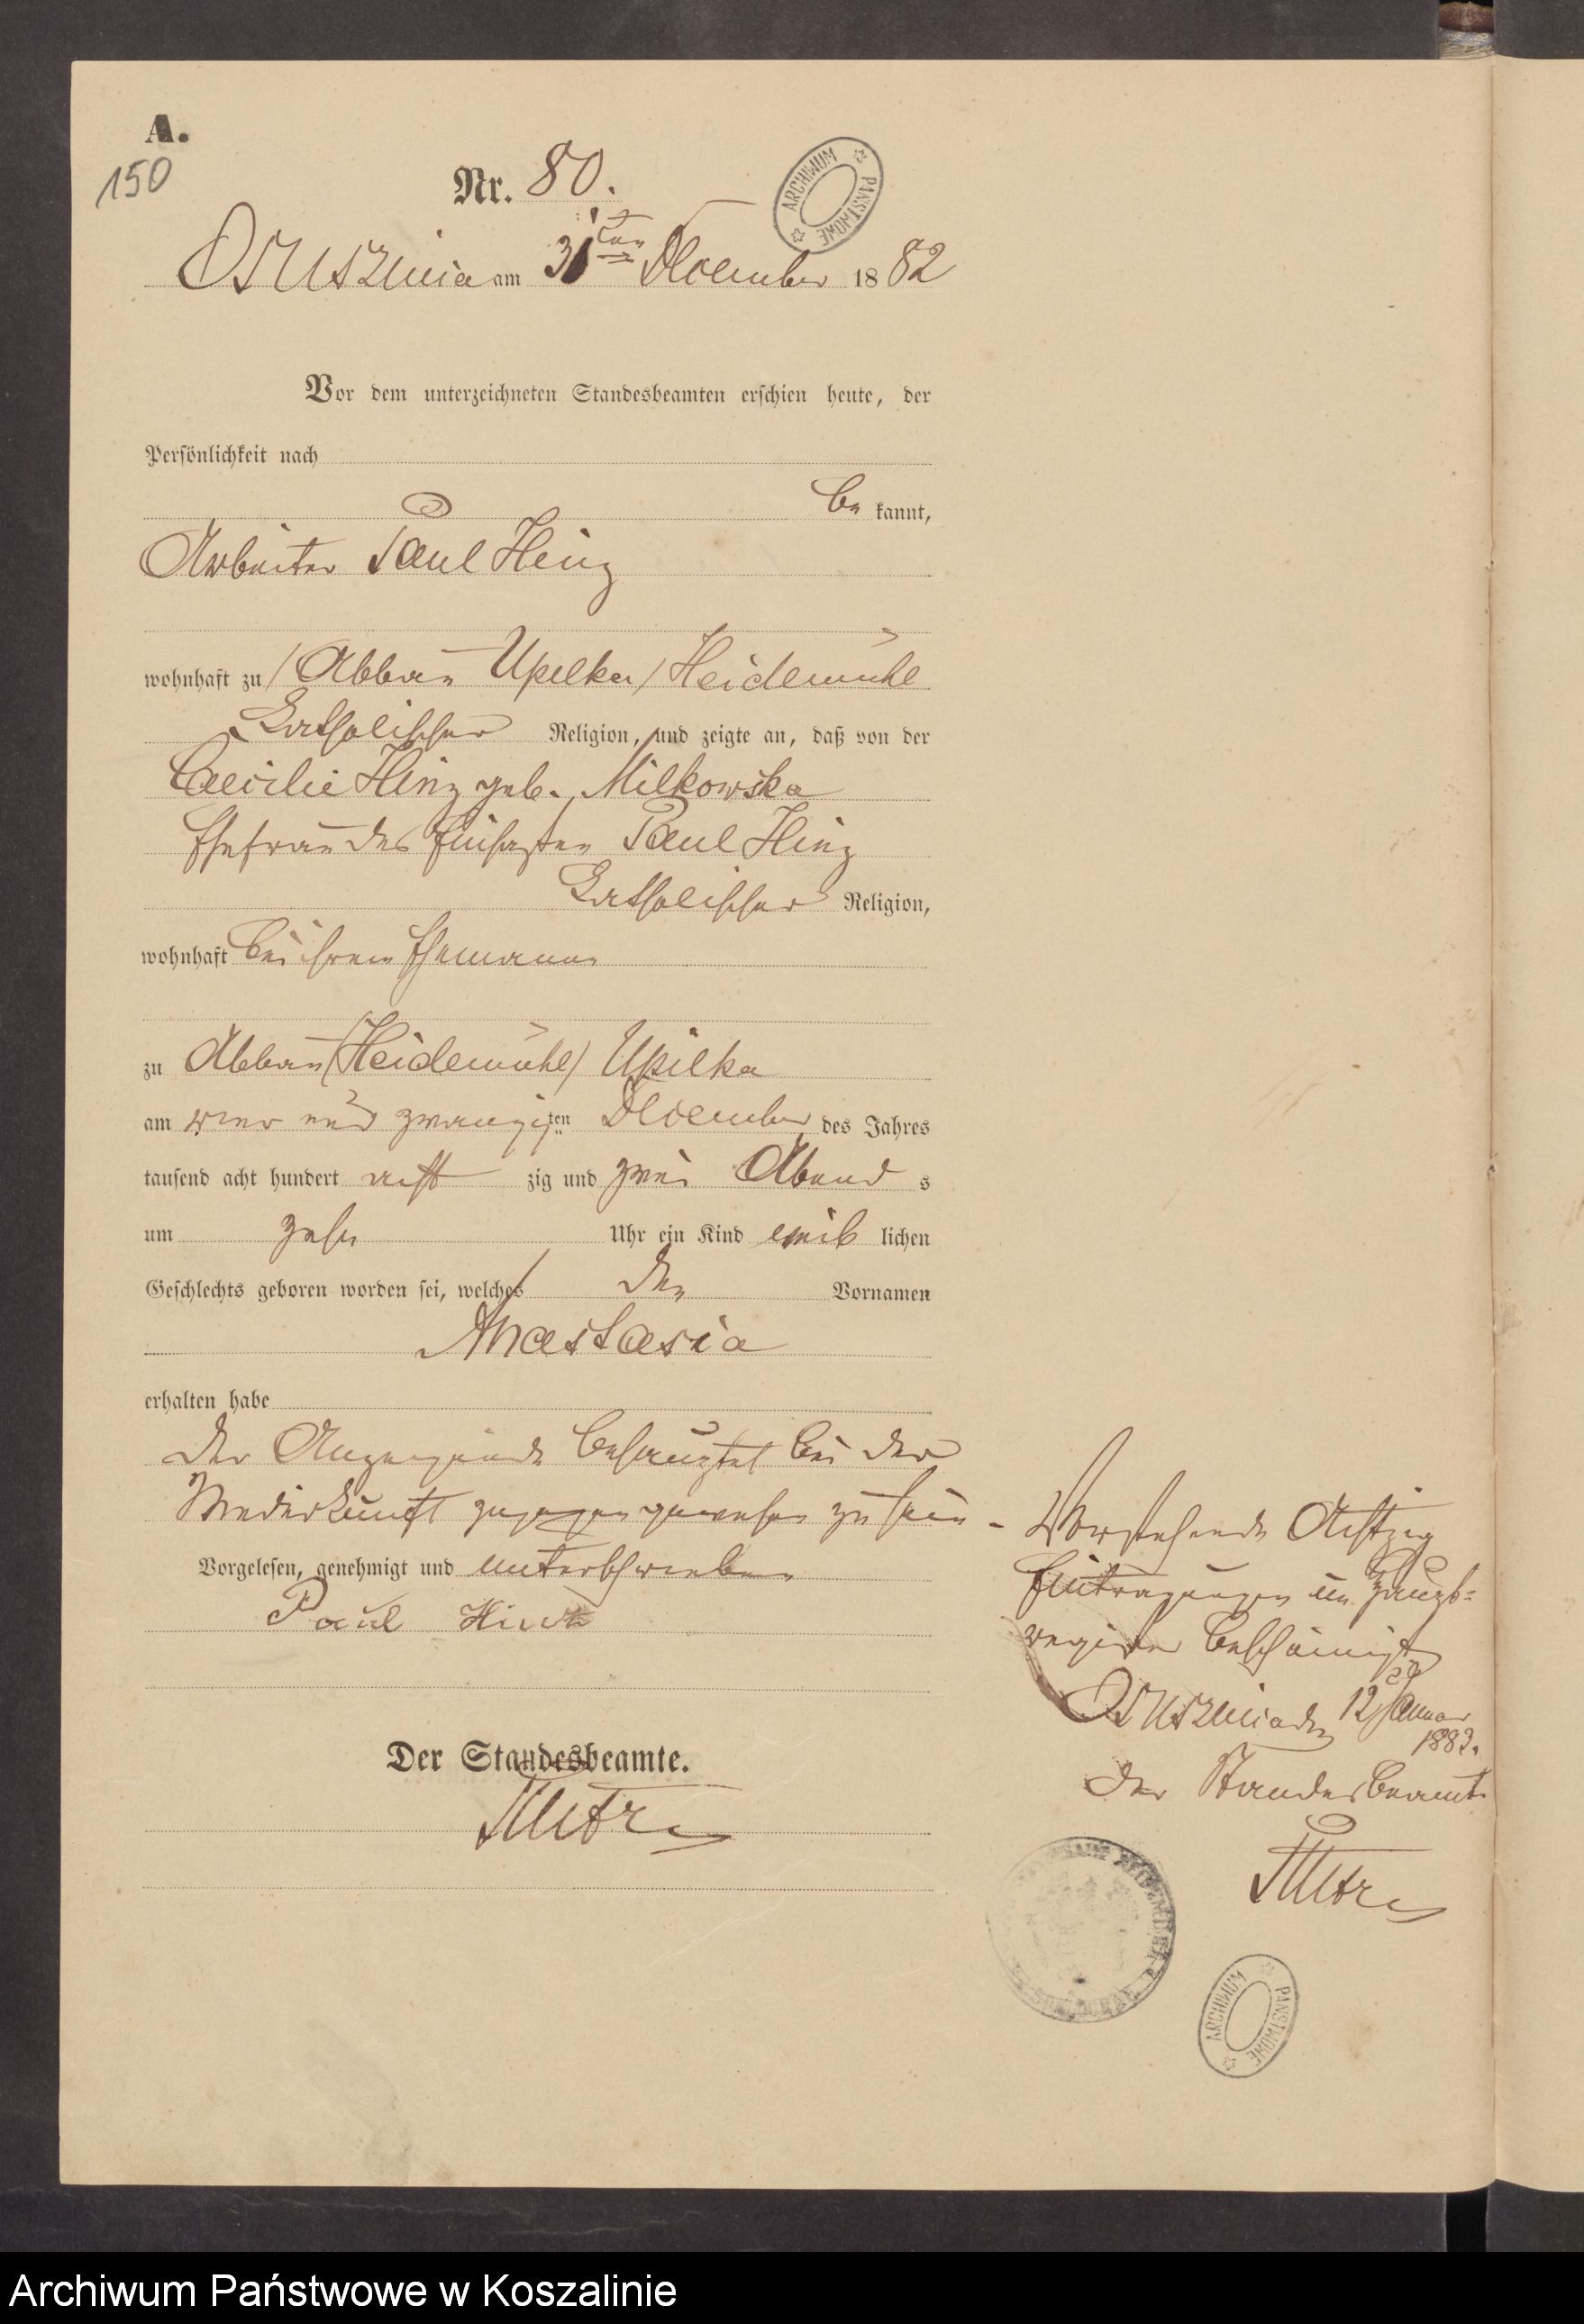 A.
150
Nr. 80.
ARCHIWUM PAŃSTWOWE
Osusznica am 31ten December 1882
Vor dem unterzeichneten Standesbeamten erschien heute, der
Persönlichkeit nach
be kannt,
Arbeiter Paul Hinz
wohnhaft zu /Abbau Upilka/ Heidemühl
katholischer Religion, und zeigte an, daß von der
Caecilie Hinz geb. Milkowska
Ehefrau des Paul Hinz
katholischer Religion,
wohnhaft bei ihrem Ehemanne
zu Abbau /Heidemühl/ Upilka
am vier und zwanzigsten December des Jahres
tausend acht hundert acht zig und zwei Abend s
um zehn Uhr ein Kind weib lichen
Geschlechts geboren worden sei, welches den Vornamen
Anastasia
erhalten habe
Der Anzeigende behauptet bei der
Niederkunft zugegen gewesen zu sein -
Vorgelesen, genehmigt und unterschrieben
Paul
Der Standesbeamte.
Vorstehende Achtzig
Eintragungen im Haupt=
register bescheinigt
Osusznica den 12 Januar
1883.
Der Standesbeamte
ARCHIWUM PAŃSTWOWE
Archiwum Państwowe w Koszalinie